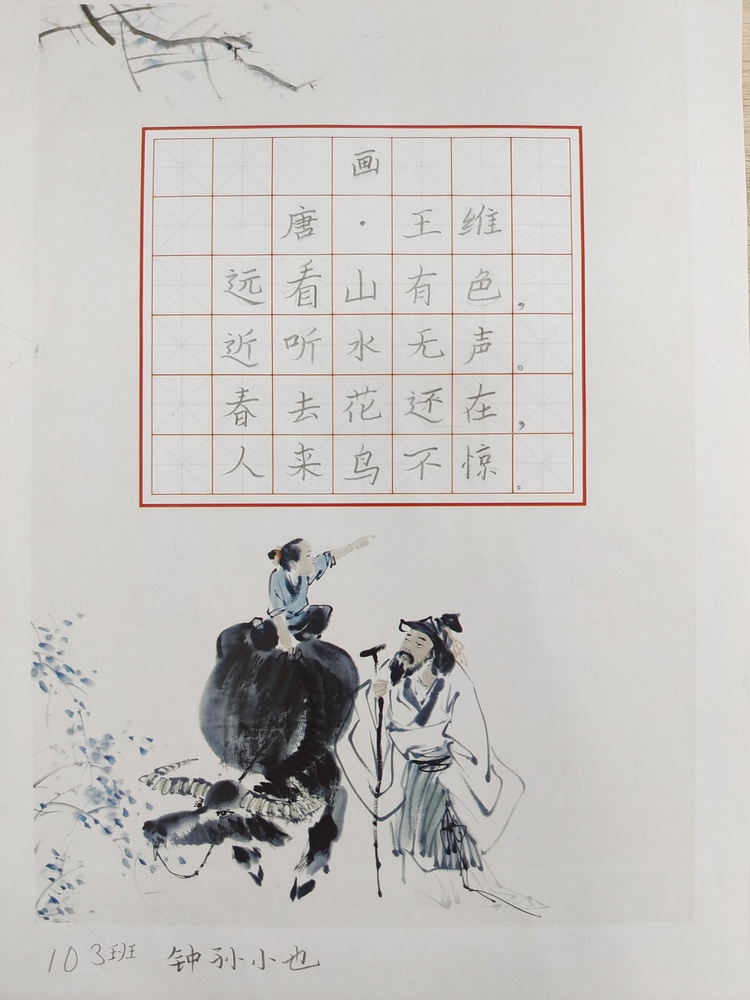 画
唐·王维
远看山有色，
近听水无声。
春去花还在，
人来鸟不惊.
103班 钟孙小也